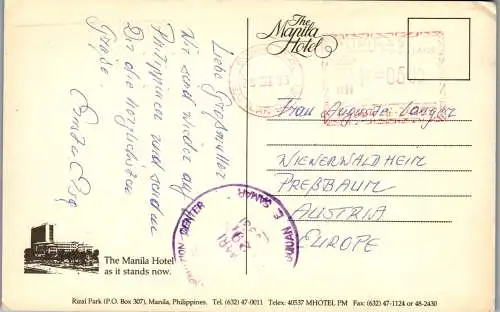 The
Manila
Hotel
Liebe Großmutter
Wir sind wieder auf
Philippinen und senden
Dir die herzlichsten
Grüße.
Frau Auguste Langer
WIENERWALDHEIM
PREßBAUM
AUSTRIA
EUROPE
The Manila Hotel
as it stands now.
Rizal Park (P.O. Box 307), Manila, Philippines. Tel. (632) 47-0011 Telex: 40537 MHOTEL PM Fax: (632) 47-1124 or 48-2430